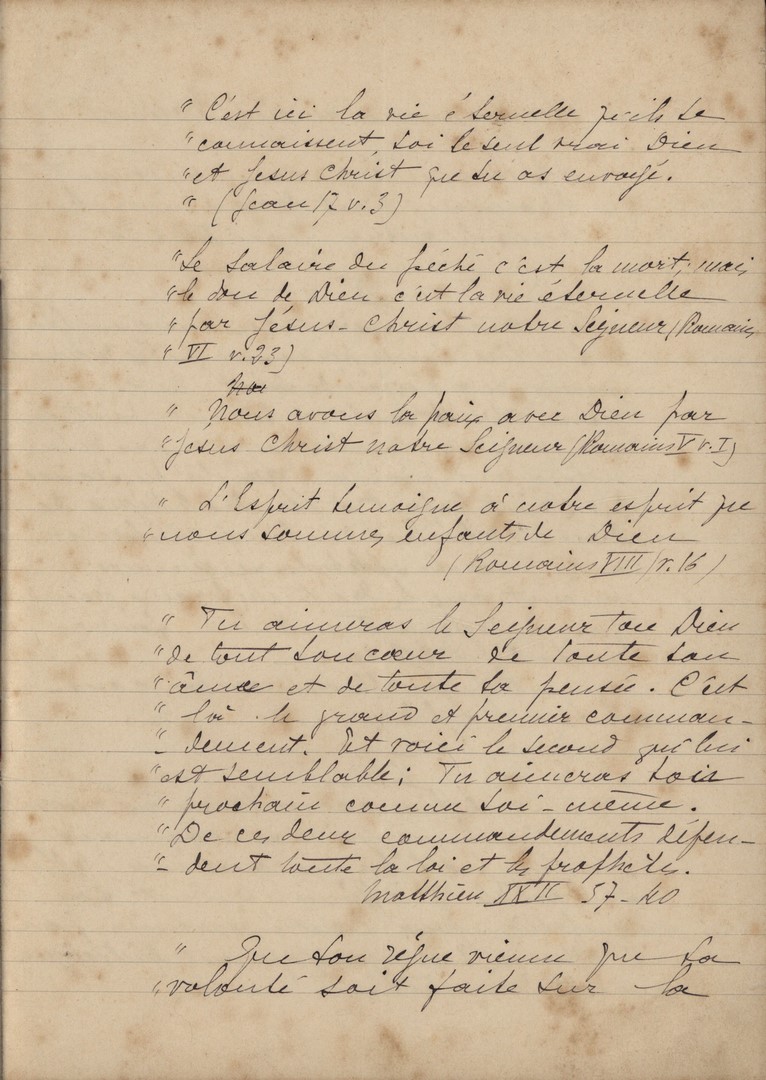 " C'est ici la vie éternelle qu'ils te
" connaissent, toi le seul vrai Dieu
" et Jésus Christ que tu as envoyé.
" (Jean 17 v. 3)
" Le salaire du péché c'est la mort; mais
" le don de Dieu c'est la vie éternelle
" par Jésus-Christ notre Seigneur (Romains
" VI v. 23)
" Nous avons la paix avec Dieu par
" Jésus Christ notre Seigneur (Romains V v. I)
" L'Esprit témoigne à notre esprit que
" nous sommes enfants de Dieu
(Romains VIII v. 16)
" Tu aimeras le Seigneur ton Dieu
" de tout ton cœur de toute ton
" âme et de toute ta pensée. C'est
" là le grand et premier comman-
" - dement. Et voici le second qui lui
" est semblable; Tu aimeras ton
" prochain comme toi-même.
" De ces deux commandements dépen-
" - dent toute la loi et les prophètes.
Matthieu XXII 37-40
" Que ton règne vienne que ta
" volonté soit faite sur la